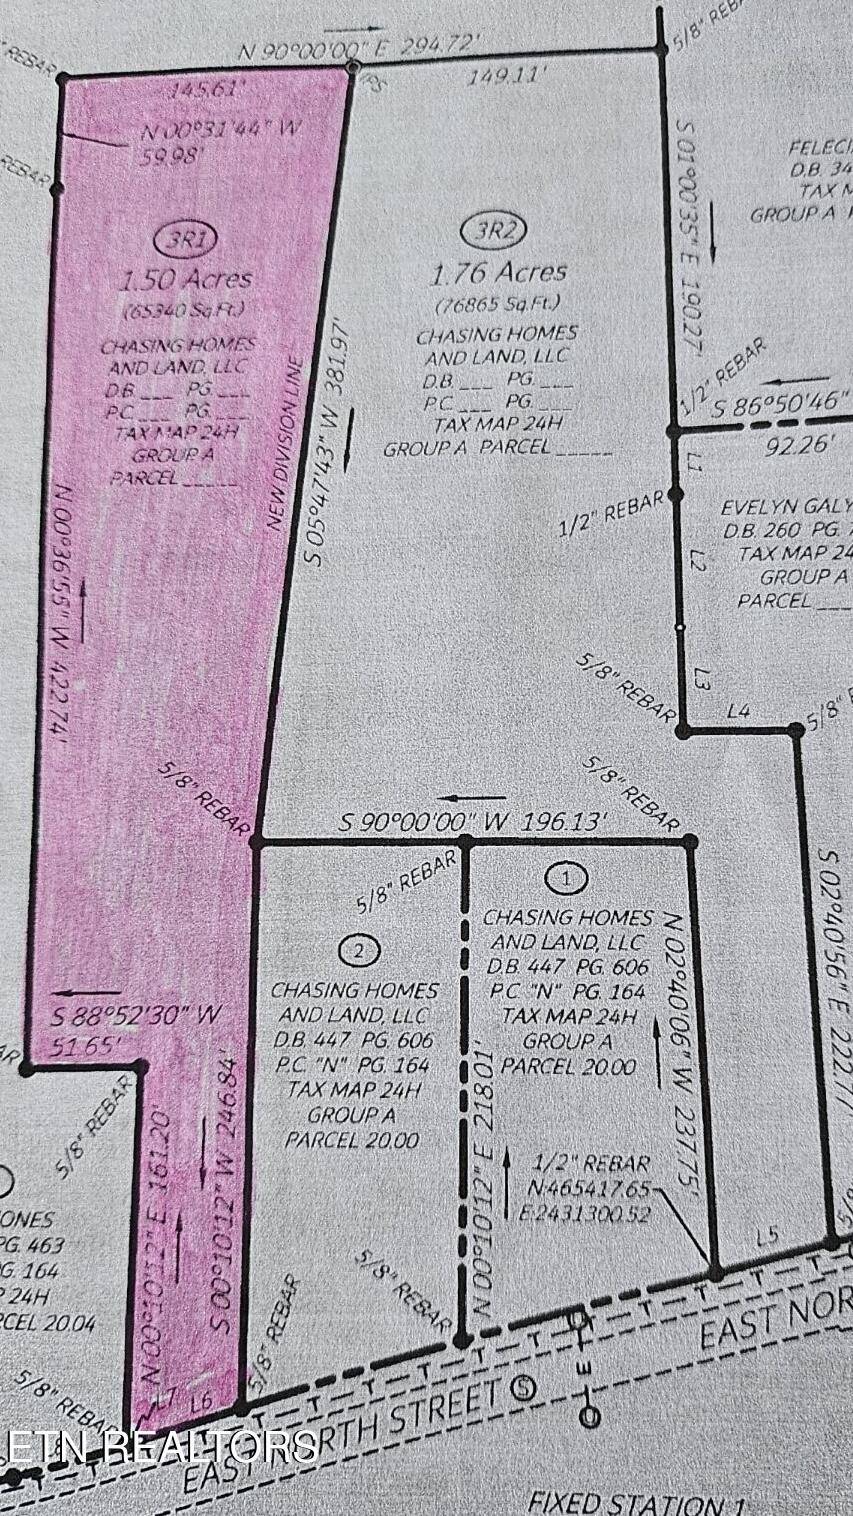 5/8" REB
REBAR
N 90°00'00" E 294.72'
145.61'
149.11'
IPS
N 00°31'44" W
59.98'
REBAR
S 01°00'35" E 190.27'
FELECI
D.B. 34
TAX M
GROUP A
3R1
1.50 Acres
(65340 Sq.Ft.)
CHASING HOMES
AND LAND, LLC
D.B. ___ PG. ___
P.C. ___ PG. ___
TAX MAP 24H
GROUP A
PARCEL _____
NEW DIVISION LINE
S 05°47'43" W 381.97'
3R2
1.76 Acres
(76865 Sq.Ft.)
CHASING HOMES
AND LAND, LLC
D.B. ___ PG. ___
P.C. ___ PG. ___
TAX MAP 24H
GROUP A PARCEL _____
1/2" REBAR
S 86°50'46"
92.26'
L1
1/2" REBAR
L2
EVELYN GALY
D.B. 260 PG.
TAX MAP 24
GROUP A
PARCEL ___
N 00°36'55" W 422.74'
5/8" REBAR
L3
L4
5/8"
5/8" REBAR
5/8" REBAR
S 90°00'00" W 196.13'
5/8" REBAR
1
CHASING HOMES
AND LAND, LLC
D.B. 447 PG. 606
P.C. "N" PG. 164
TAX MAP 24H
GROUP A
PARCEL 20.00
N 02°40'06" W 237.75'
S 02°40'56" E 222.77'
2
CHASING HOMES
AND LAND, LLC
D.B. 447 PG. 606
P.C. "N" PG. 164
TAX MAP 24H
GROUP A
PARCEL 20.00
S 88°52'30" W
51.65'
AR
5/8" REBAR
N 00°10'12" E 161.20'
S 00°10'12" W 246.84'
N 00°10'12" E 218.01'
1/2" REBAR
N:465417.65
E:2431300.52
ONES
PG. 463
G. 164
24H
CEL 20.04
5/8" REBAR
5/8" REBAR
5/8" REBAR
L7
L6
L5
EAST NOR
EAST NORTH STREET
S
E
ETN REALTORS
FIXED STATION 1